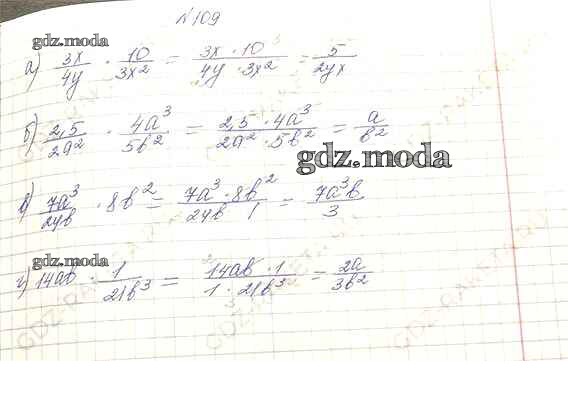 №109
gdz.moda
а) 3x/4y · 10/3x² = 3x · 10/4y · 3x² = 5/2yx
б) 2,5/2a² · 4a³/5b² = 2,5 · 4a³/2a² · 5b² = a/b²
gdz.moda
в) 7a³/24b · 8b² = 7a³ · 8b²/24b · 1 = 7a³b/3
gdz.moda
г) 14ab · 1/21b³ = 14ab · 1/1 · 21b³ = 2a/3b²